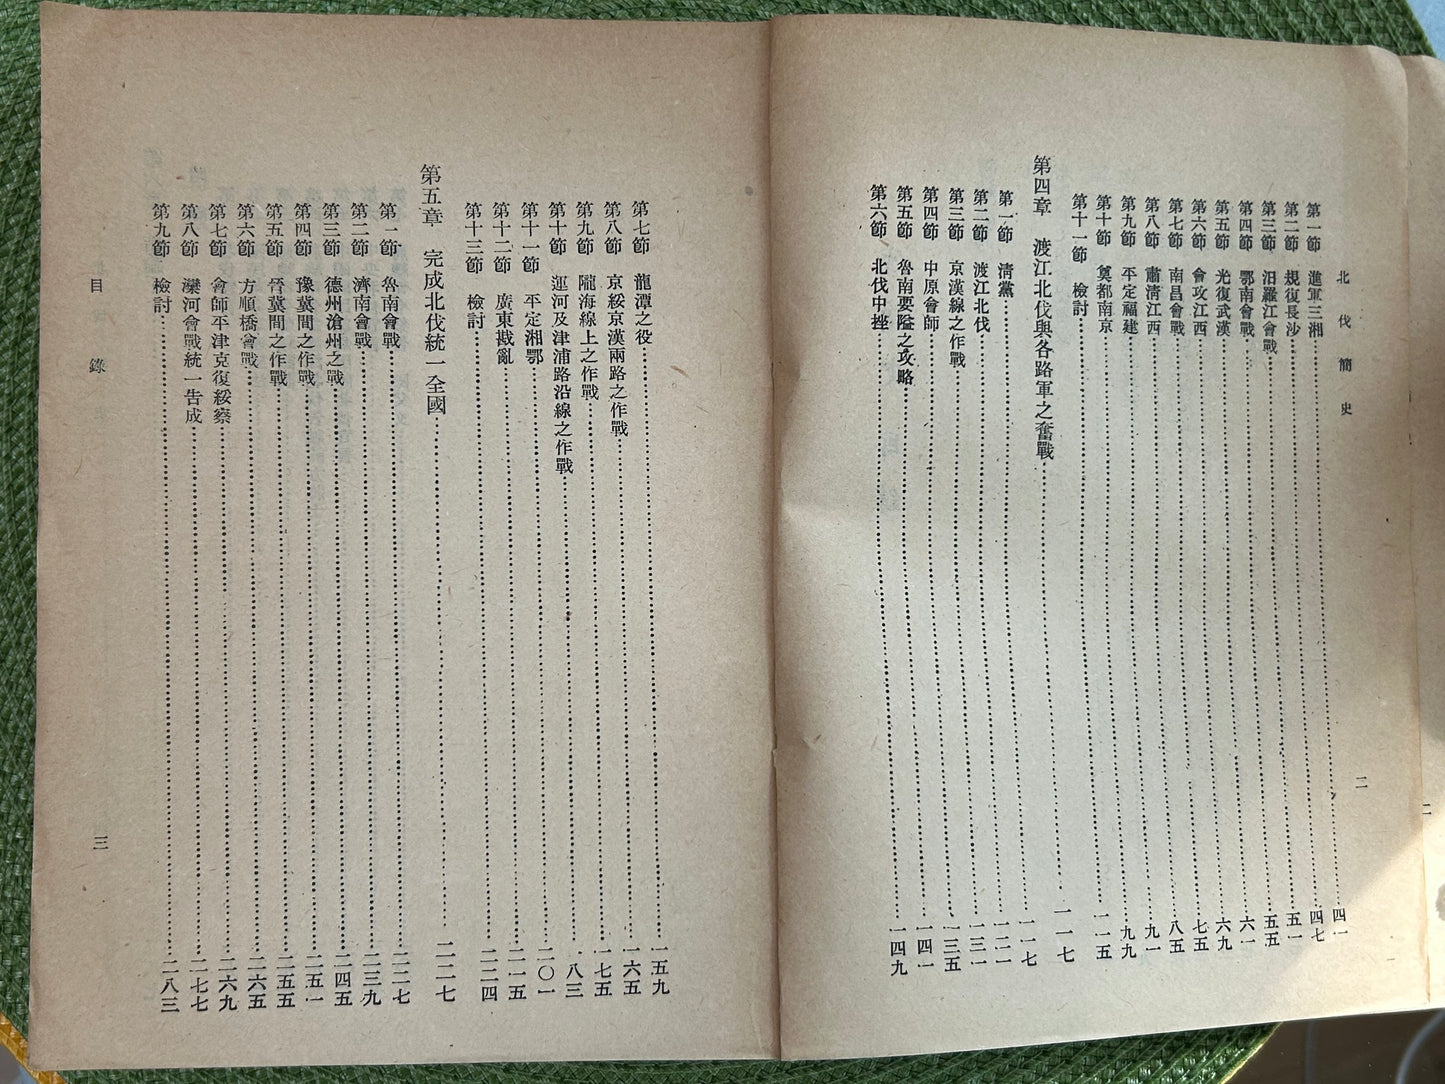 北伐簡史
二
第一節 進軍三湘……四一
第二節 規復長沙……四七
第三節 汨羅江會戰……五一
第四節 鄂南會戰……五五
第五節 光復武漢……六一
第六節 會攻江西……六九
第七節 南昌會戰……七五
第八節 肅清江西……八五
第九節 平定福建……九一
第十節 奠都南京……九九
第十一節 檢討……一一五
第四章 渡江北伐與各路軍之奮戰……一一七
第一節 清黨……一一七
第二節 渡江北伐……一二一
第三節 京漢線之作戰……一三一
第四節 中原會師……一三五
第五節 魯南要隘之攻略……一四一
第六節 北伐中挫……一四九
第七節 龍潭之役……一五九
第八節 京綏京漢兩路之作戰……一六五
第九節 隴海線上之作戰……一七五
第十節 運河及津浦路沿線之作戰……一八三
第十一節 平定湘鄂……二〇一
第十二節 廣東戡亂……二一五
第十三節 檢討……二二四
第五章 完成北伐統一全國……二二七
第一節 魯南會戰……二二七
第二節 濟南會戰……二三九
第三節 德州滄州之戰……二四五
第四節 豫冀間之作戰……二五一
第五節 晉冀間之作戰……二五五
第六節 方順橋會戰……二六五
第七節 會師平津克復綏察……二六九
第八節 灤河會戰統一告成……二七七
第九節 檢討……二八三
目錄
三